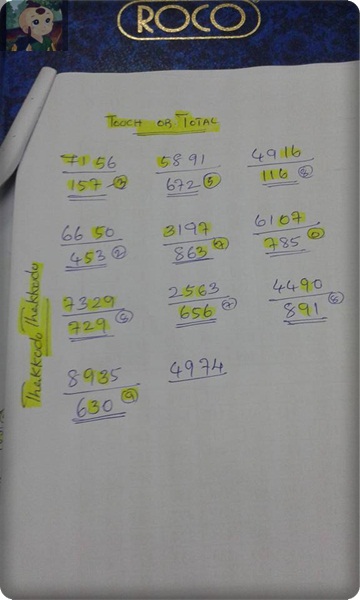 ROCO
TOOCH OR TOTAL
7156 5891 4916
157 3 672 5 116 8
6650 3197 6107
453 2 863 7 785 0
7329 2563 4490
729 8 656 7 891 8
8935 4974
630 9
Thakkodo Thakkody